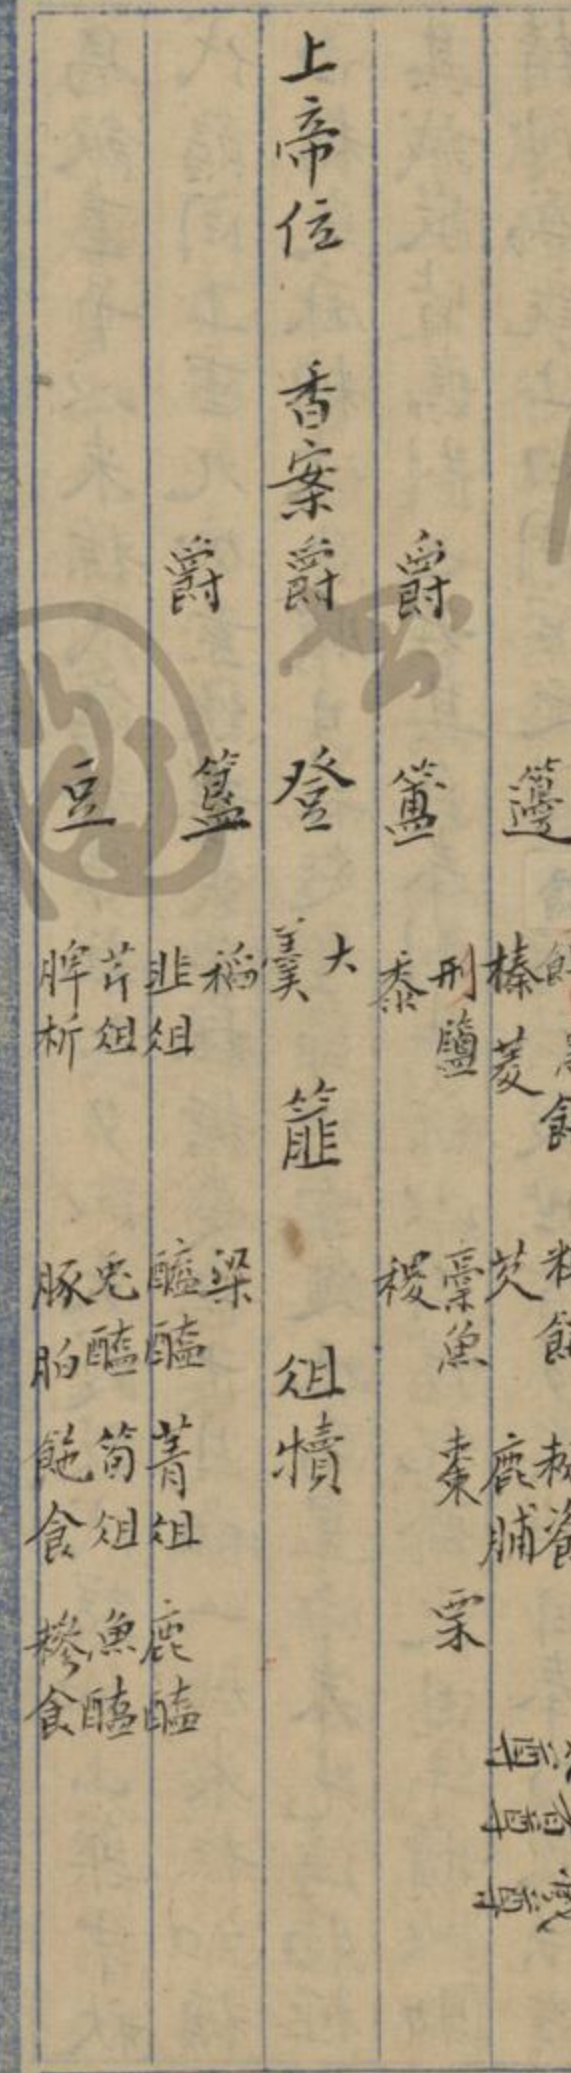 籩
榛 菱 芡 鹿脯
爵 簠
刑鹽 藁魚 棗 栗
黍 稷
上帝位 香案 爵 登 大羹 篚 俎 犢
爵 簋
稻 梁
韭俎 醓醢 菁俎 鹿醢
豆
芹俎 兎醢 筍俎 魚醢
脾析 豚胉 飽食 糝食